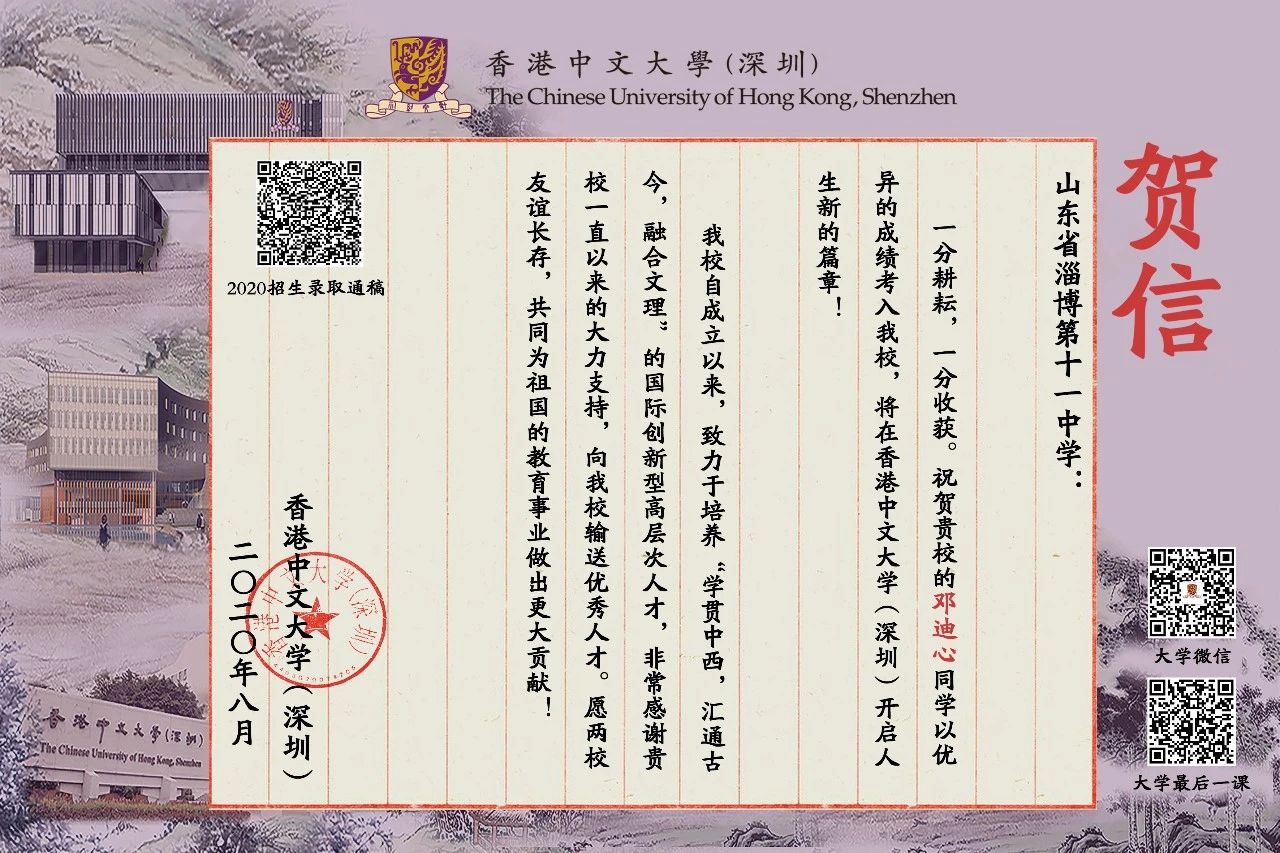 香港中文大學(深圳)
The Chinese University of Hong Kong, Shenzhen
贺信
山东省淄博第十一中学：
一分耕耘，一分收获。祝贺贵校的邓迪心同学以优
异的成绩考入我校，将在香港中文大学（深圳）开启人
生新的篇章！
我校自成立以来，致力于培养“学贯中西，汇通古
今，融合文理”的国际创新型高层次人才，非常感谢贵
校一直以来的大力支持，向我校输送优秀人才。愿两校
友谊长存，共同为祖国的教育事业做出更大贡献！
香港中文大学（深圳）
二〇二〇年八月
香港中文大学(深圳)
2020招生录取通稿
大学微信
大学最后一课
香港中文大學(深圳)
The Chinese University of Hong Kong, Shenzhen